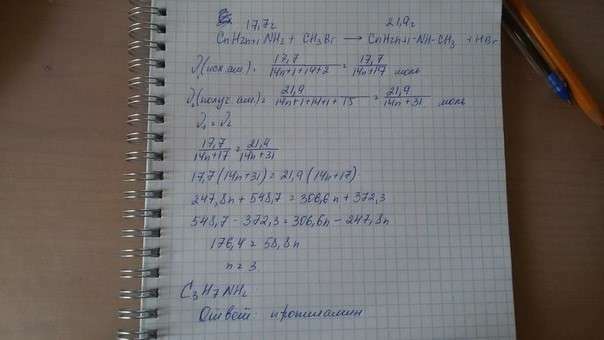 17,7г 21,9г
CnH2n+1NH2 + CH3Br → CnH2n+1-NH-CH3 + HBr
ν1(исх.ам) = 17,7/14n+1+14+2 = 17,7/14n+17 моль
ν2(получ.ам) = 21,9/14n+1+14+1+15 = 21,9/14n+31 моль
ν1 = ν2
17,7/14n+17 = 21,9/14n+31
17,7(14n+31) = 21,9(14n+17)
247,8n + 548,7 = 306,6n + 372,3
548,7 - 372,3 = 306,6n - 247,8n
176,4 = 58,8n
n = 3
C3H7NH2
Ответ: пропиламин